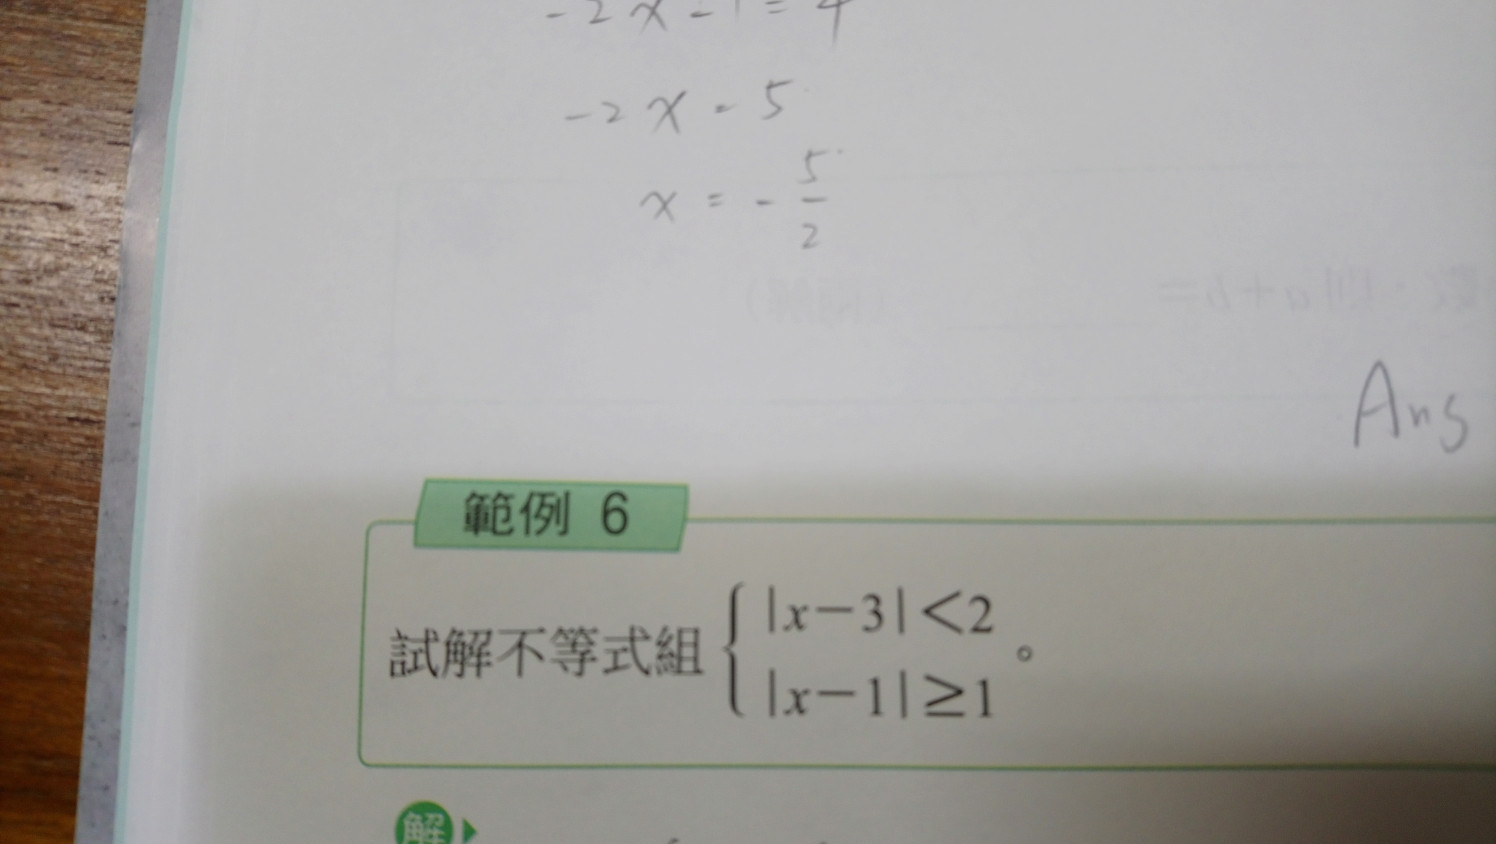 -2x-1=4
-2x=5
x=-5/2
Ans
範例 6
試解不等式組 { |x-3|<2
|x-1|≥1 。
解